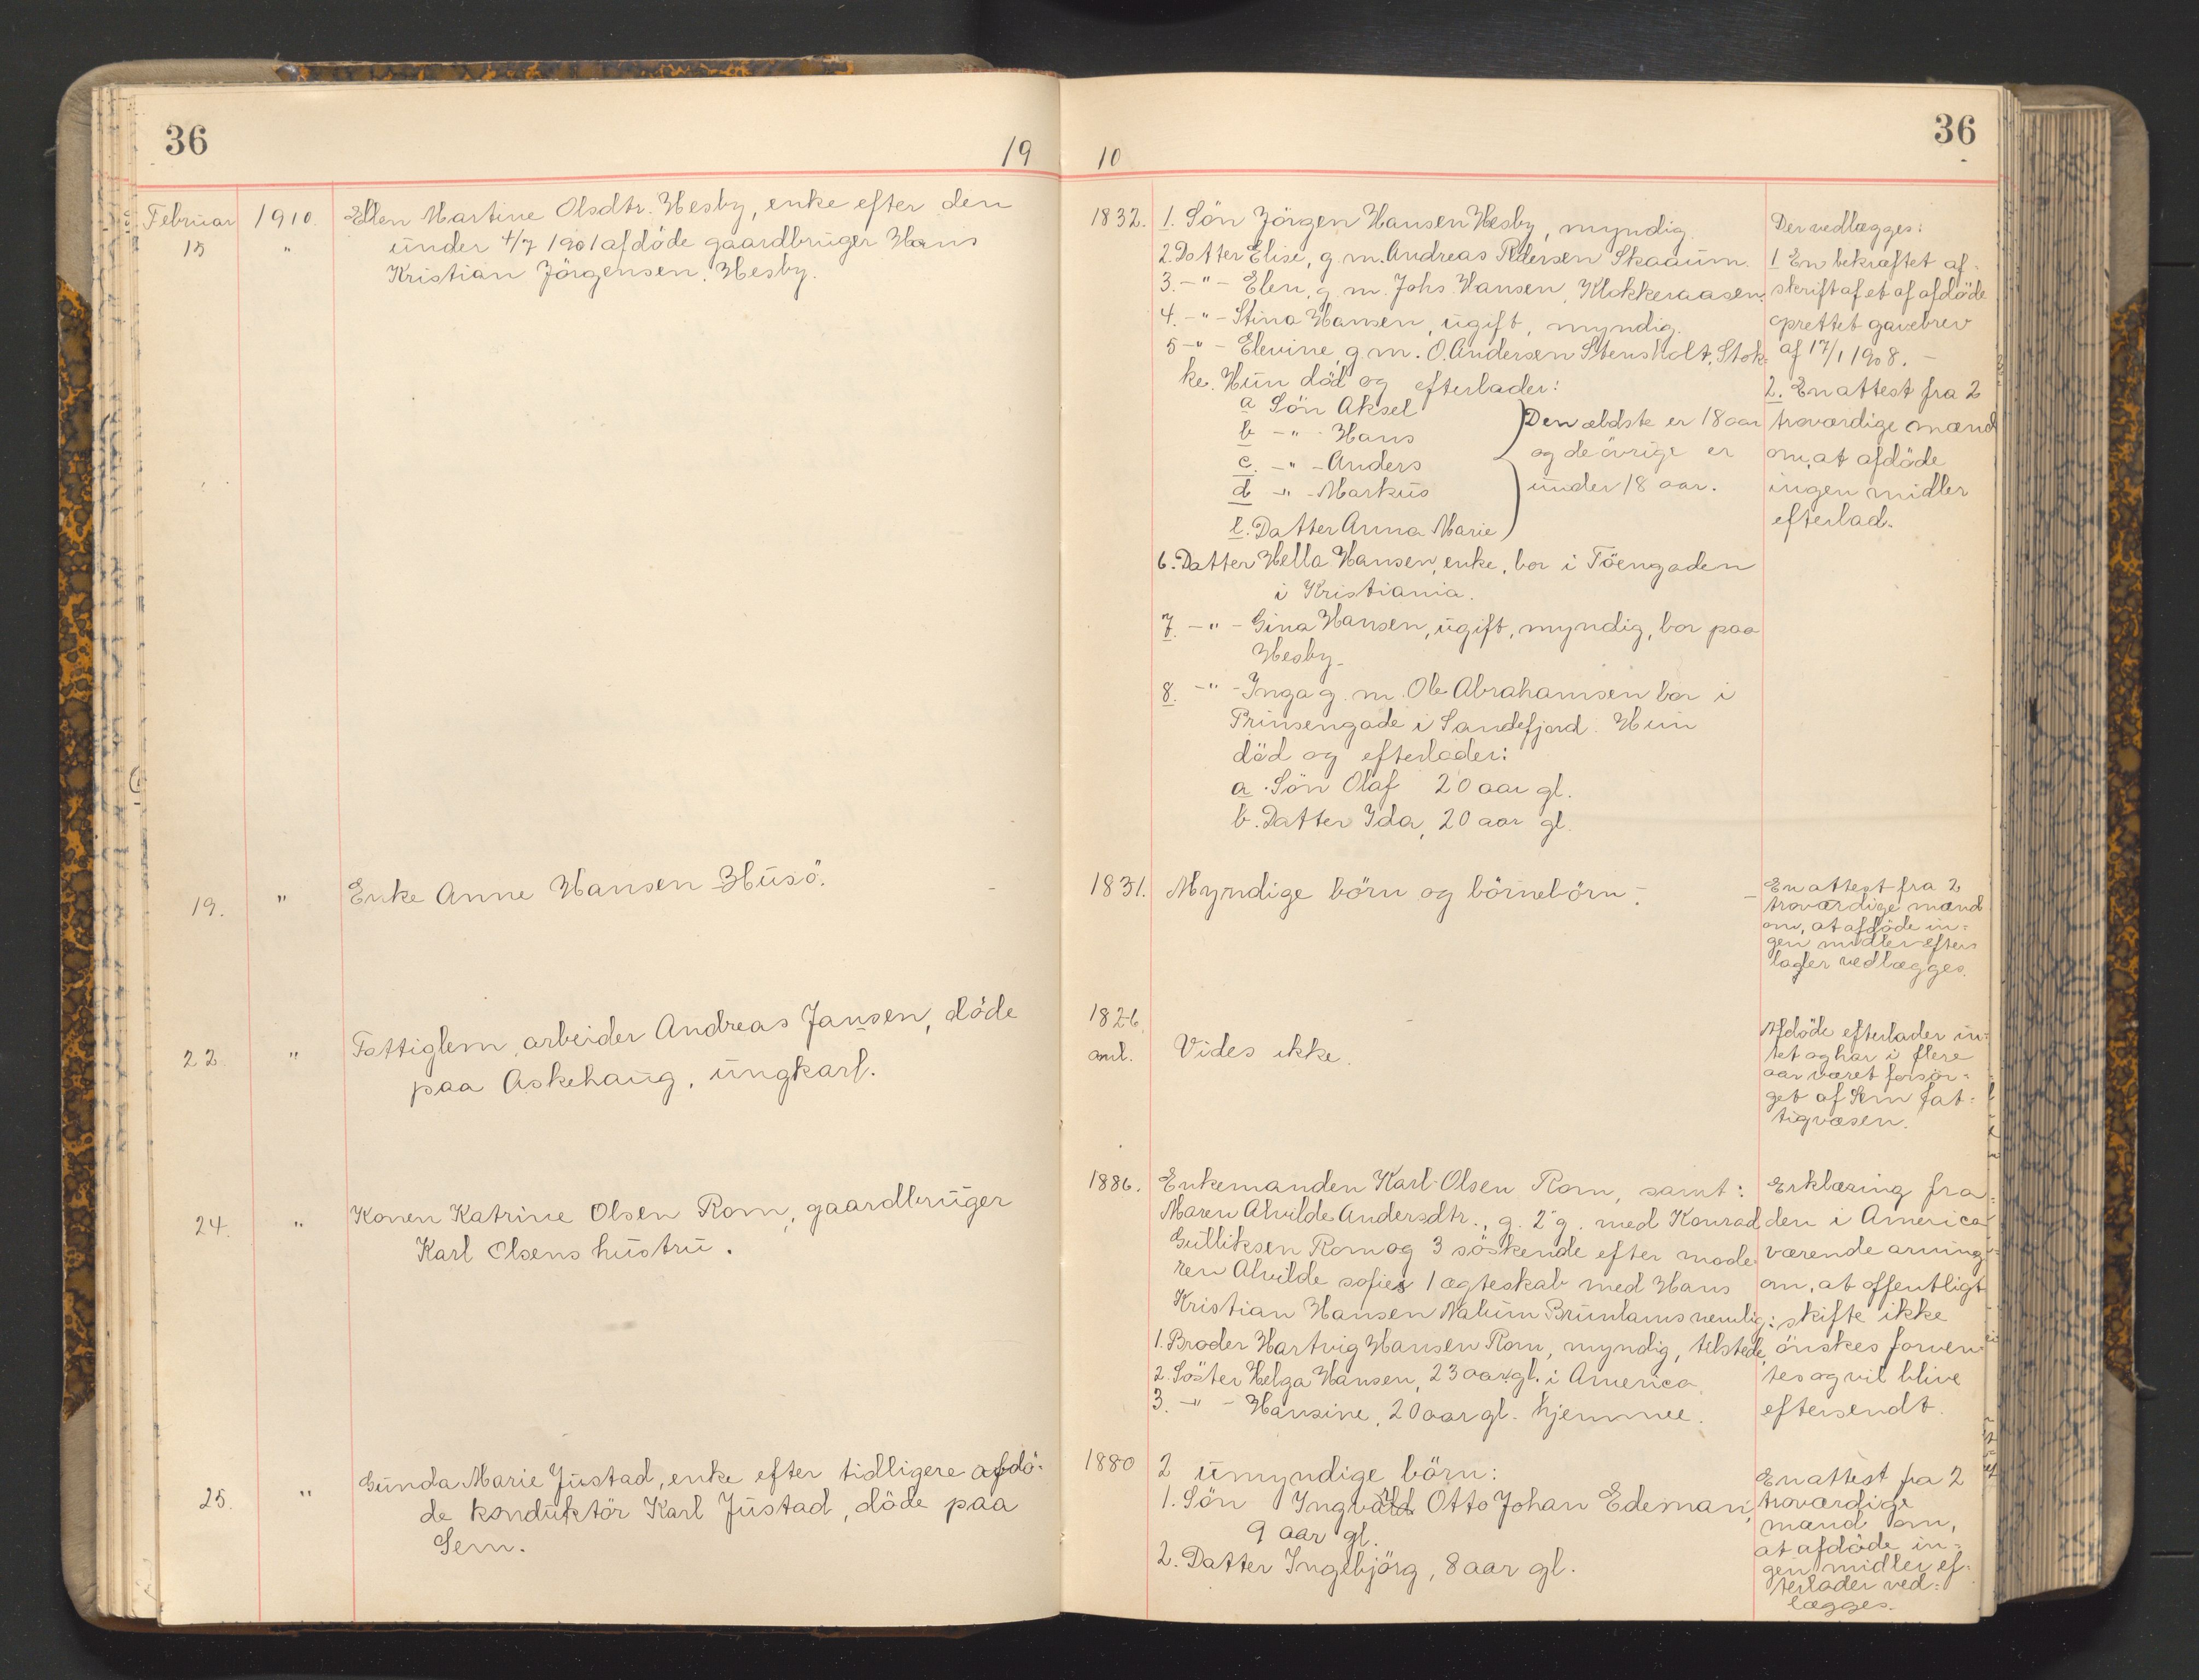 36
19 10
36
Februar 1910. Ellen Martine Olsdtr. Hesby, enke efter den
15 " under 4/7 1901 afdöde gaardbruger Hans
Kristian Jörgensen Hesby.
1832. 1. Sön Jörgen Hansen Hesby, myndig.
2. Datter Elise, g. m. Andreas Pedersen Skaaum.
3. -"- Elen, g. m. Johs. Hansen, Klokkeraasen.
4. -"- Stina Hansen, ugift, myndig.
5 -"- Elevine, g. m. O. Andersen Stensholt, Stok-
ke. Hun död og efterlader:
a Sön Aksel
b -"- Hans
c. -"- Anders
d -"- Markus
e. Datter Anna Marie
Den ældste er 18 aar
og de övrige er
under 18 aar.
6. Datter Hella Hansen, enke, bor i Töengaden
i Kristiania.
7. -"- Gina Hansen, ugift, myndig, bor paa
Hesby.
8. -"- Inga g. m. Ole Abrahamsen bor i
Prinsengade i Sandefjord. Hun
död og efterlader:
a. Sön Olaf 20 aar gl.
b. Datter Ida, 20 aar gl.
Der vedlægges:
1 En bekræftet af-
skrift af et af afdöde
oprettet gavebrev
af 17/1 1908. -
2. En attest fra 2
troværdige mænd
om, at afdöde
ingen midler
efterlad.
19. " Enke Anne Hansen Husö.
1831. Myndige börn og börnebörn.
En attest fra 2
troværdige mænd
om, at afdöde in-
gen midler efter-
lader vedlægges.
22. " Fattiglem, arbeider Andreas Jansen, döde
paa Askehaug, ungkarl.
1826.
anl. Vides ikke.
Afdöde efterlader in-
tet og har i flere
aar været forsör-
get af Sem fat-
tigvæsen.
24. " Konen Katrine Olsen Rom, gaardbruger
Karl Olsens hustru.
1886. Enkemanden Karl Olsen Rom, samt:
Maren Alvilde Andersdtr., g. 2 g. med Konrad
Gulliksen Rom og 3 söskende efter mode-
ren Alvilde sofies 1 ægteskab med Hans
Kristian Hansen Nalum Brunlanes nemlig:
1. Broder Hartvig Hansen Rom, myndig, tilstede
2. Söster Helga Hansen, 23 aar gl. i America.
3. -"- Hansine, 20 aar gl. hjemme.
Erklæring fra
den i America
værende arving
om, at offentligt
skifte ikke
önskes forven-
tes og vil blive
eftersendt.
25. " Gunda Marie Justad, enke efter tidligere afdö-
de konduktör Karl Justad, döde paa
Sem.
1880 2 umyndige börn:
1. Sön Ingvald Otto Johan Edeman,
9 aar gl.
2. Datter Ingebjörg, 8 aar gl.
En attest fra 2
troværdige
mænd om,
at afdöde in-
gen midler ef-
terlader ved-
lægges.